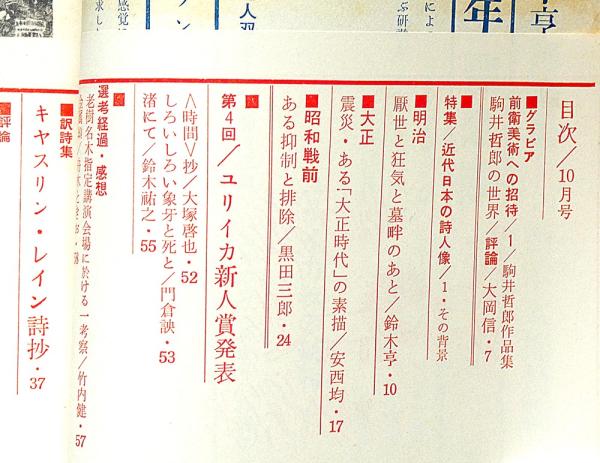 目次/10月号
■グラビア
前衛美術への招待/1/駒井哲郎作品集
駒井哲郎の世界/評論/大岡信・7
特集/近代日本の詩人像/1・その背景
■明治
厭世と狂気と墓畔のあと/鈴木亨・10
■大正
震災・ある「大正時代」の素描/安西均・17
■昭和戦前
ある抑制と排除/黒田三郎・24
■
第4回/ユリイカ新人賞発表
<時間>抄/大塚啓也・52
しろいしろい象牙と死と/門倉訣・53
渚にて/鈴木祐之・55
■
選考経過・感想
老樹名木指定講演会場に於ける一考察/竹内健・57
■訳詩集
キャスリン・レイン詩抄・37
■評論